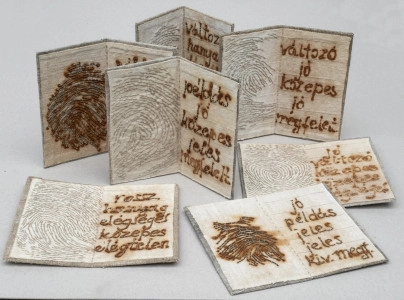 változ
hanya
változó
jó
közepes
jó
megfelelt
példás
jó
közepes
jeles
megfelelt
jó
változó
közepes
rossz
hanyag
elégséges
közepes
elégtelen
jó
példás
jeles
jeles
kiv. megf